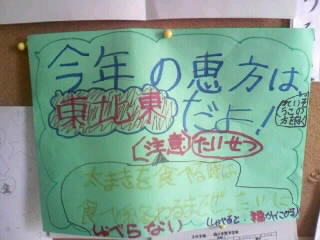 今年の恵方は
東北東だよ！
注意 たいせつ
太まきを食べる時は
食べおわるまでぜったいに
しゃべらない
(しゃべると、福がにげる)